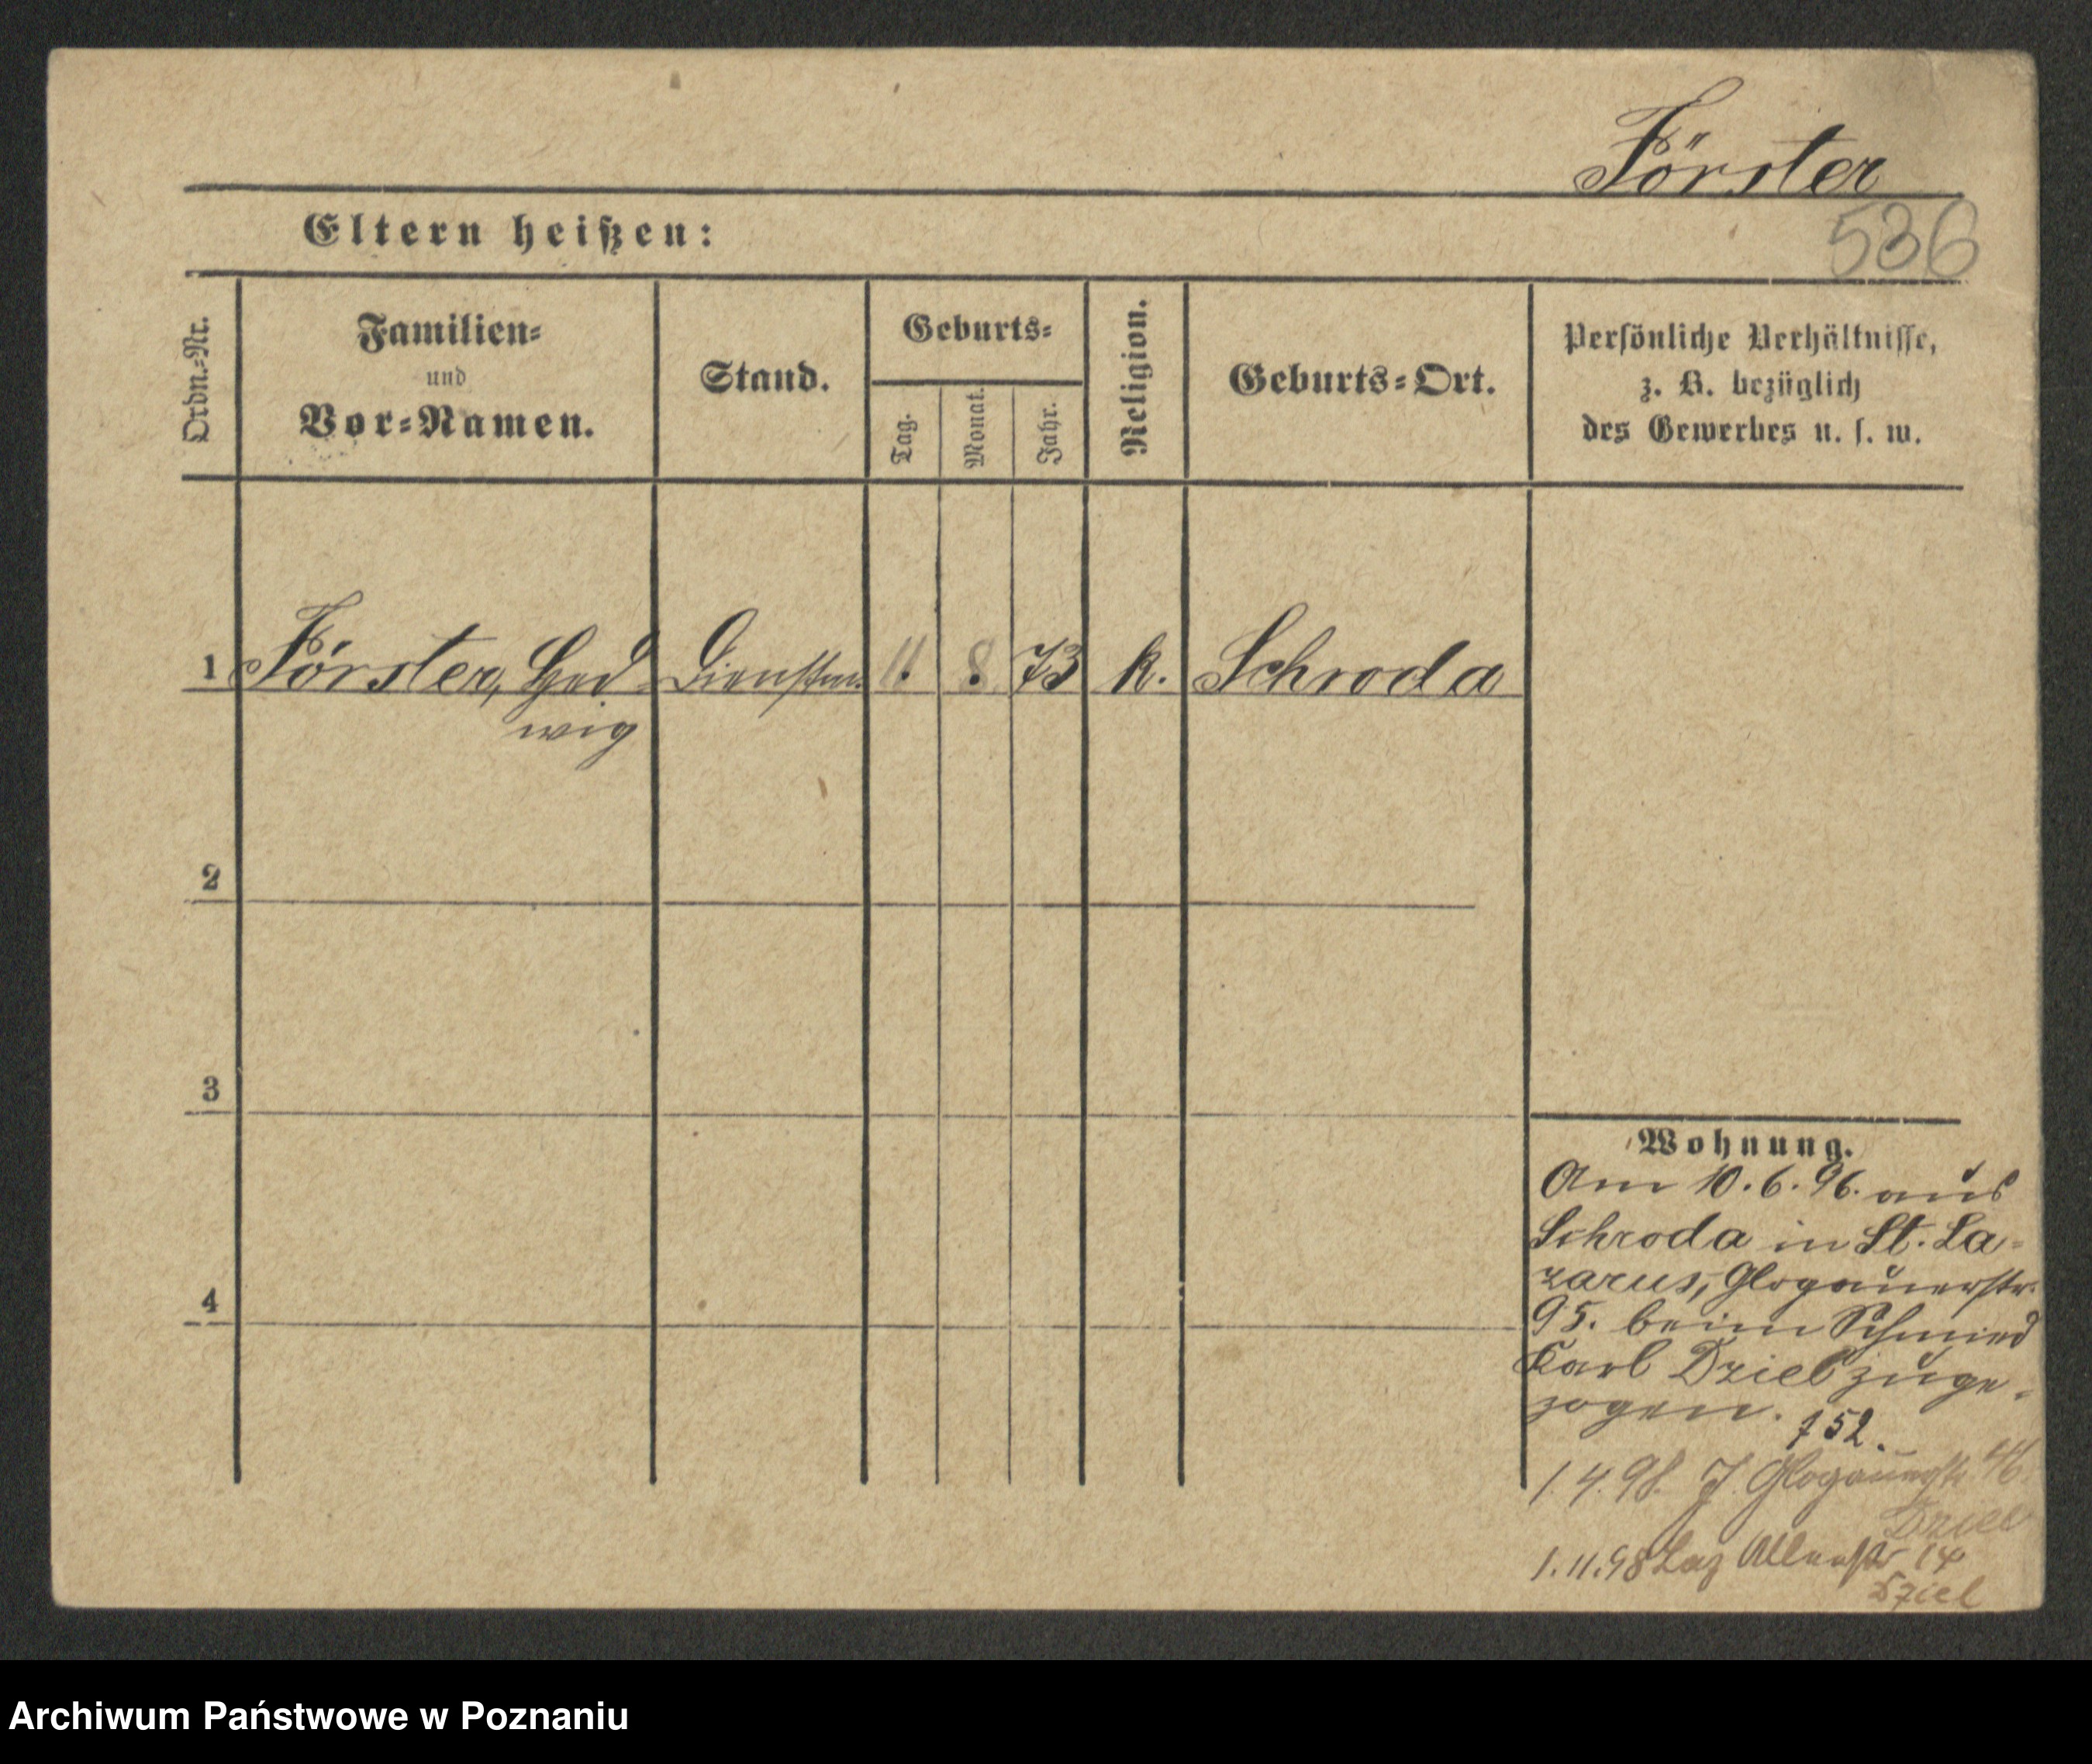 Förster
536
Eltern heißen:
Ordn.-Nr.
Familien-
und
Vor-Namen.
Stand.
Geburts-
Tag.
Monat.
Jahr.
Religion.
Geburts-Ort.
Persönliche Verhältnisse,
z. B. bezüglich
des Gewerbes u. s. w.
1 Förster, Hed- Dienstm. 11. 8. 73 k. Schroda
wig
2
3
4
Wohnung.
Am 10.6.96. aus
Schroda in St. La-
zarus, Glogauerstr.
95. beim Schmied
Karl Dziel zuge-
zogen. 152.
1 4. 98. J Glogauerstr 46
Dziel
1.11.98 Laz Allerstr 14
Dziel
Archiwum Państwowe w Poznaniu